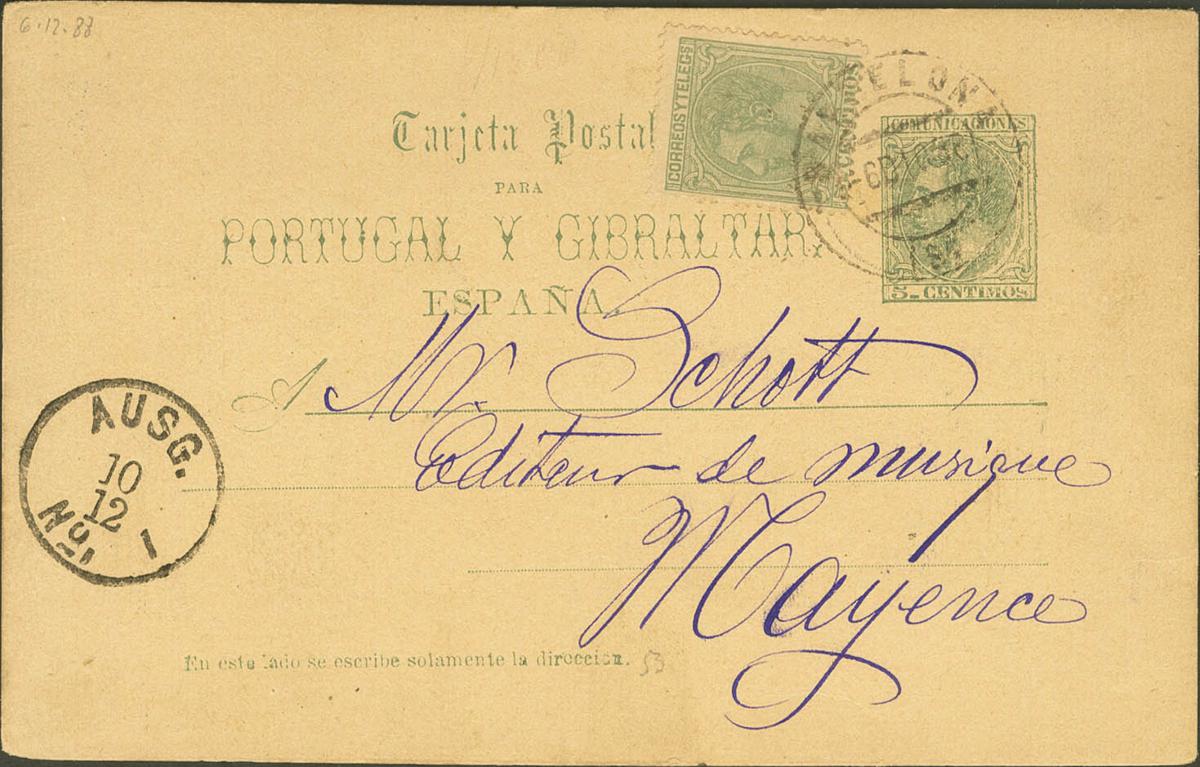 6-12-88
CORREOS Y TELEGS
BARCELONA
COMUNICACIONES
5 - CENTIMOS
Tarjeta Postal
PARA
PORTUGAL Y GIBRALTAR.
ESPAÑA.
A Mr. Schott
Editeur de musique
Mayence
AUSG.
10
12
No. 1
En este lado se escribe solamente la direccion.
53